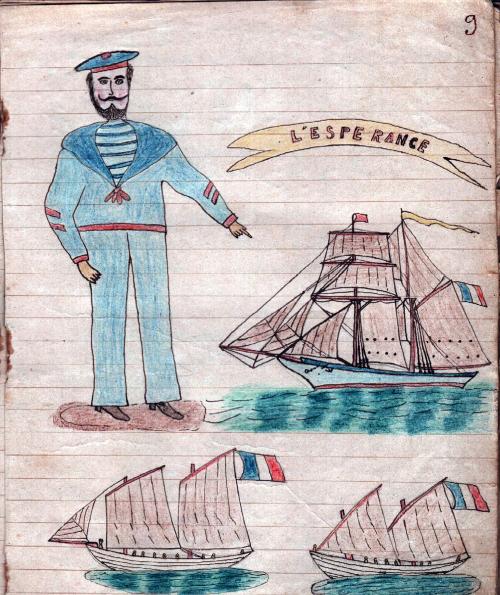 9
L'ESPERANCE